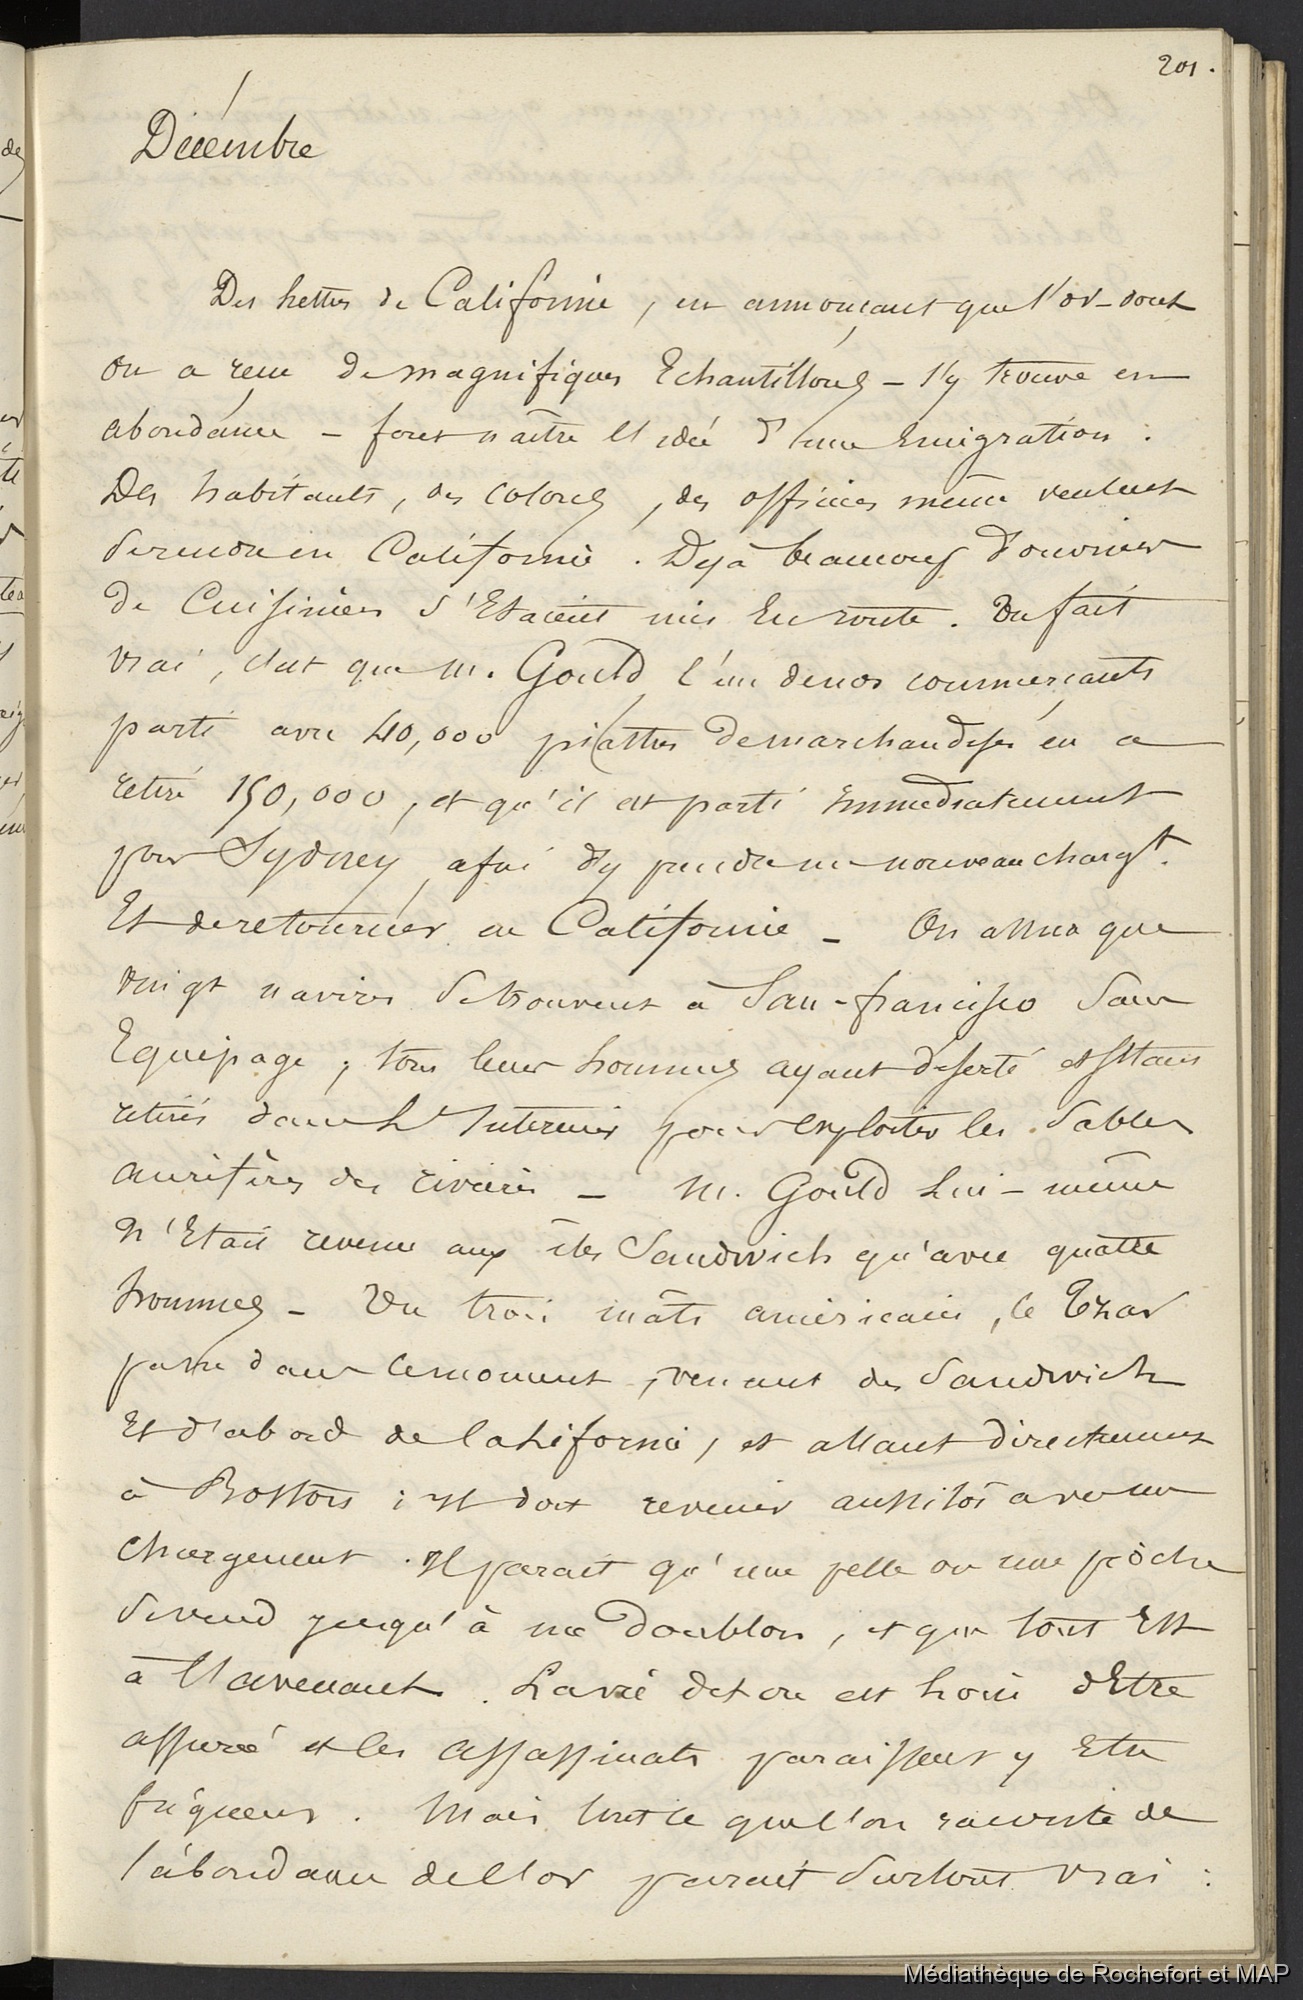 201.
Décembre
Des lettres de Californie, en annonçant que l'or – dont
on a reçu de magnifiques Echantillons – s'y trouve en
abondance – font naître l'idée d'une Emigration :
Des habitants, des colons, des officiers même veulent
se rendre en Californie. Dejà beaucoup d'ouvriers
de Cuisiniers s'Etaient mis En route. Un fait
vrai, c'est que M. Gould l'un de nos commerçants
parti avec 40,000 piastres de marchandises en a
retiré 150,000, et qu'il est parti immediatement
pour Sydney, afin d'y prendre un nouveau chargt.
Et de retourner en Californie – On assure que
vingt navires se trouvent à San-francisco sans
Equipage ; tous leurs hommes ayant déserté et s'étant
retirés dans l'Interieur pour exploiter les sables
aurifères des rivières – M. Gould Lui-même
n'Etait revenu aux îles Sandwich qu'avec quatre
hommes – Un trois mâts américain, le Tzar
passe dans ce moment, venant des Sandwich
Et d'abord de Californie, et allant directement
à Boston ; il doit revenir aussitôt avec un
chargement. Il parait qu'une pelle ou une pioche
se vend jusqu'à un doublon, et que tout Est
à l'avenant. La vie de l'or est loin d'Etre
assurée et les assassinats paraissent y Etre
fréquens. Mais tout ce que l'on raconte de
l'abondance de l'or parait surtout vrai :
Médiathèque de Rochefort et MAP